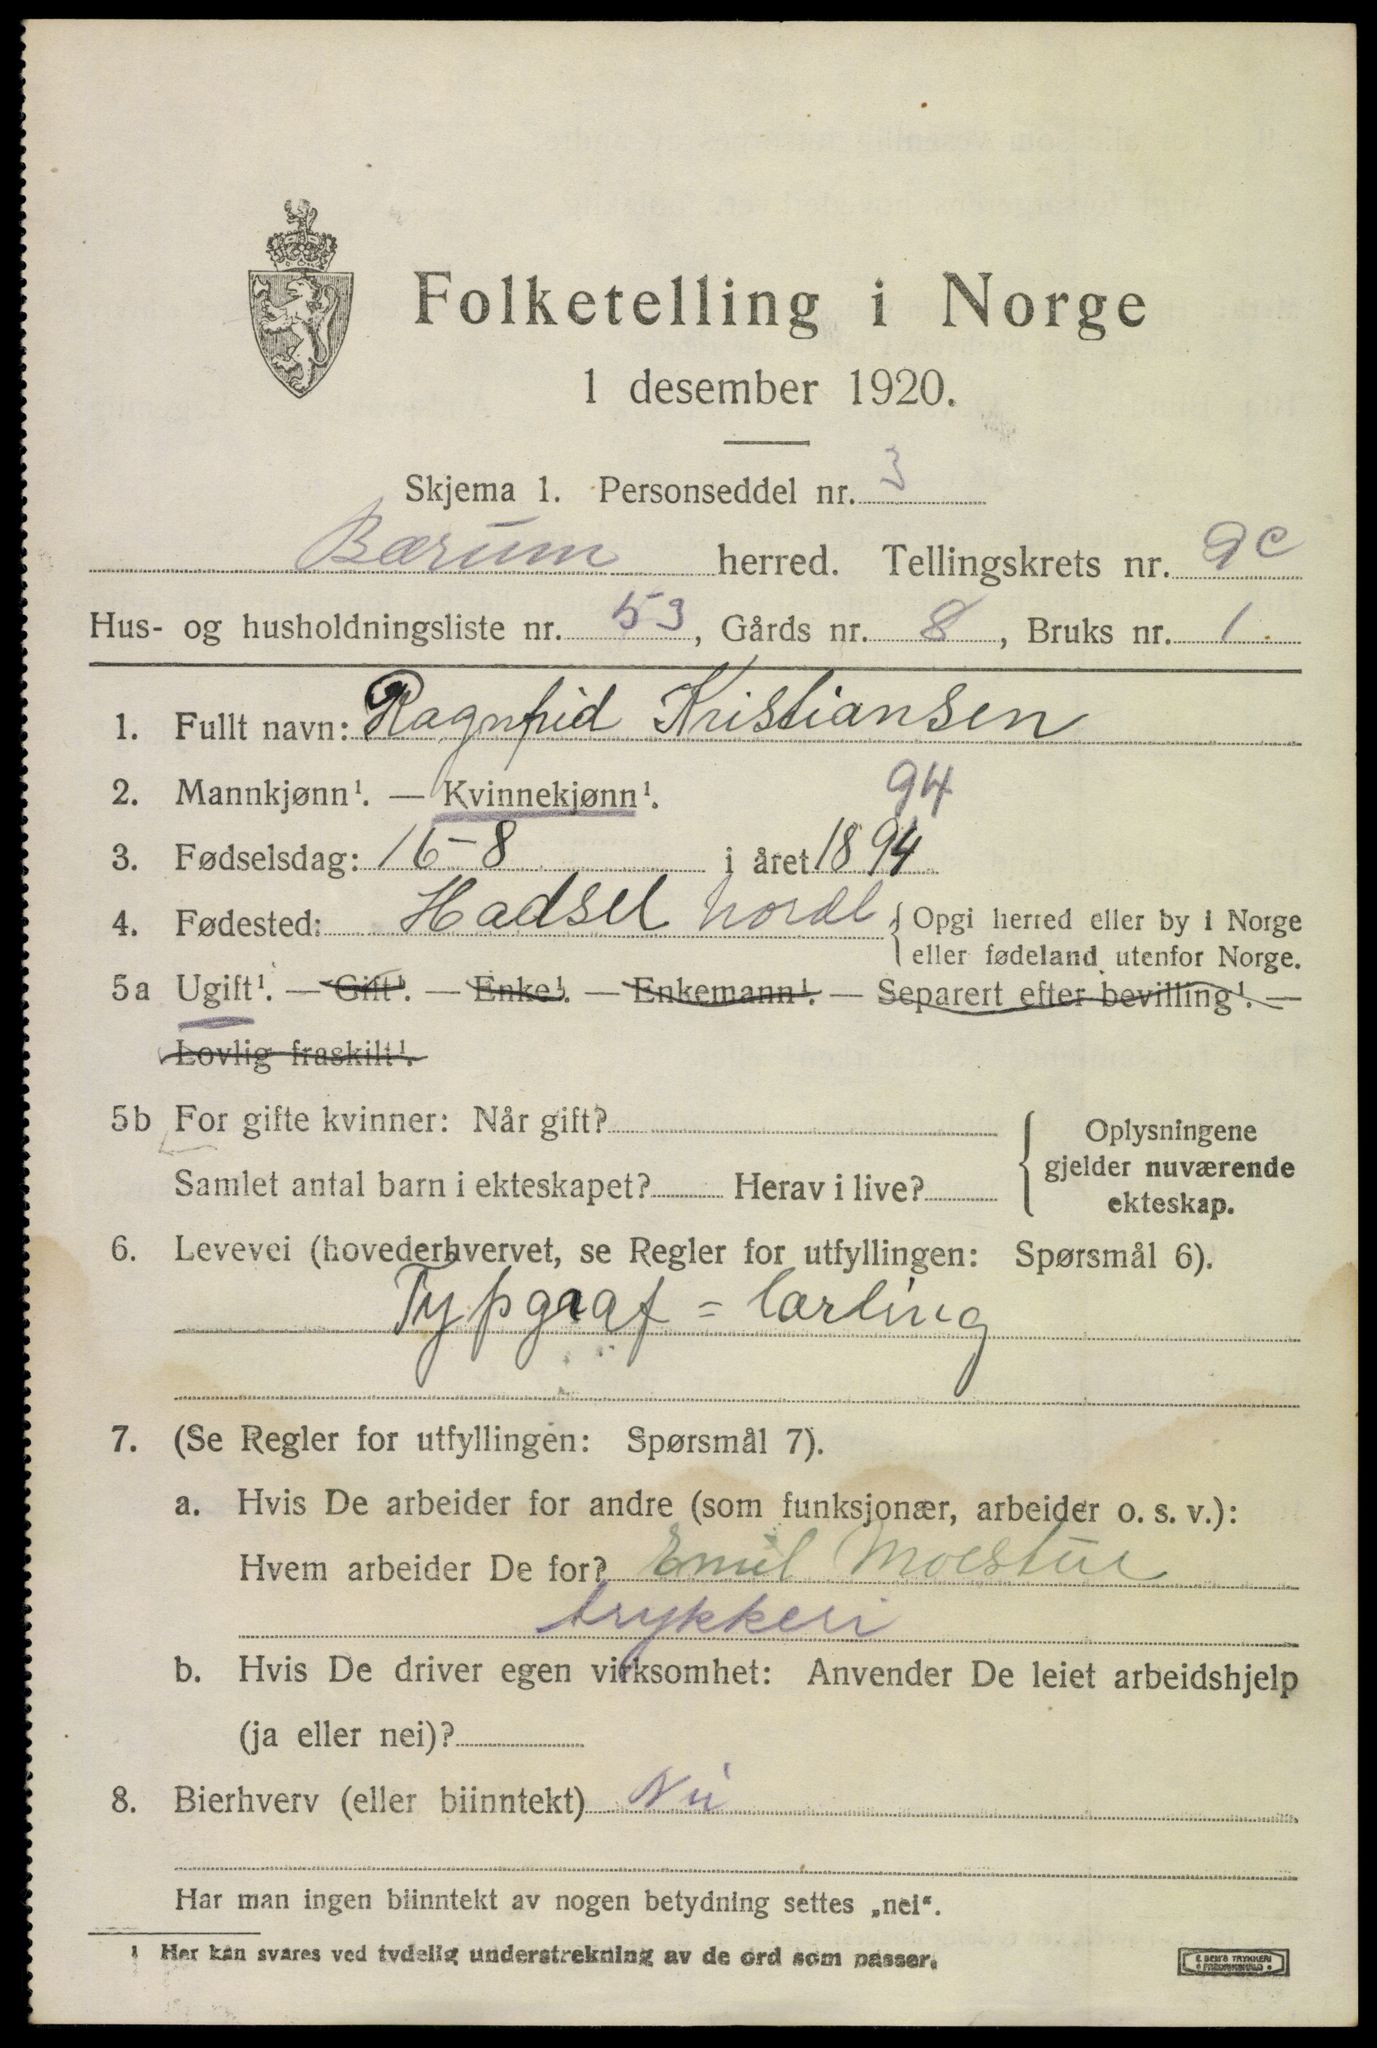 Folketelling i Norge
1 desember 1920.
Skjema 1. Personseddel nr. 3
Bærum herred. Tellingskrets nr. 9c
Hus- og husholdningsliste nr. 53, Gårds nr. 8, Bruks nr. 1.
1. Fullt navn: Ragnfrid Kristiansen
2. Mannkjønn¹. — Kvinnekjønn¹. 94
3. Fødselsdag: 16-8 i året 1894
4. Fødested: Hadsel Nordl { Opgi herred eller by i Norge
eller fødeland utenfor Norge.
5a Ugift¹. — Gift¹. — Enke¹. — Enkemann¹. — Separert efter bevilling¹. —
Lovlig fraskilt¹.
5b For gifte kvinner: Når gift? { Oplysningene
gjelder nuværende
Samlet antal barn i ekteskapet? Herav i live? ekteskap.
6. Levevei (hovederhvervet, se Regler for utfyllingen: Spørsmål 6).
Typgraf = lærling
7. (Se Regler for utfyllingen: Spørsmål 7).
a. Hvis De arbeider for andre (som funksjonær, arbeider o. s. v.):
Hvem arbeider De for? Emil Moestue
trykkeri
b. Hvis De driver egen virksomhet: Anvender De leiet arbeidshjelp
(ja eller nei)?
8. Bierhverv (eller biinntekt) Nei
Har man ingen biinntekt av nogen betydning settes „nei“.
1 Her kan svares ved tydelig understrekning av de ord som passer.
E. SEM'S TRYKKERI
FREDRIKSHALD